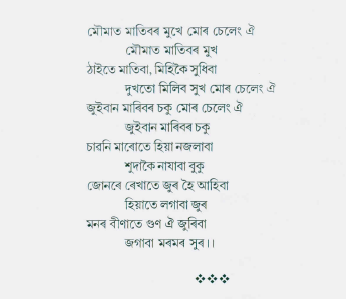 মৌমাত মাতিবৰ মুখে মোৰ চেলেং ঐ
মৌমাত মাতিবৰ মুখ
ঠাইতে মাতিবা, মিহিকৈ সুধিবা
দুখতো মিলিব সুখ মোৰ চেলেং ঐ
জুইবান মাৰিবৰ চকু মোৰ চেলেং ঐ
জুইবান মাৰিবৰ চকু
চাৱনি মাৰোতে হিয়া নজলাবা
শুদাকৈ নাযাবা বুকু
জোনৰে ৰেখাতে জুৰ হৈ আহিবা
হিয়াতে লগাবা জুৰ
মনৰ বীণাতে গুণ ঐ জুৰিবা
জগাবা মৰমৰ সুৰ।।
❖❖❖